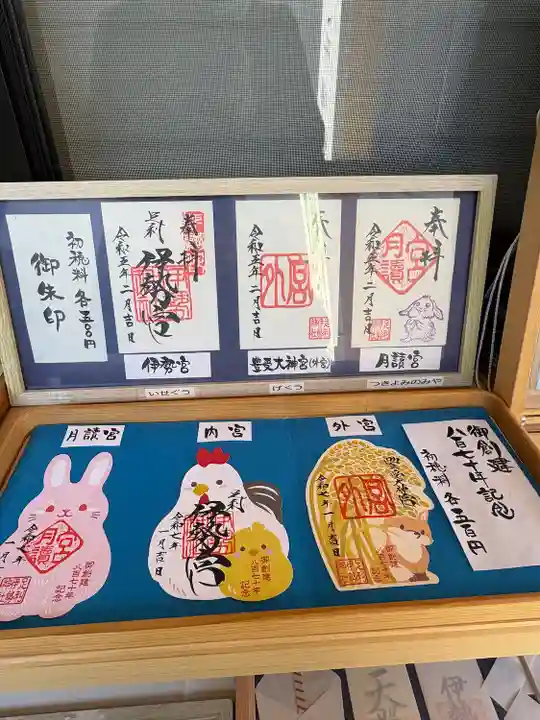 初穂料 各五〇〇円
御朱印
奉拝
足利
伊勢宮
令和五年二月吉日
伊勢宮
いせぐう
外宮
令和五年二月吉日
豊受大神宮(外宮)
げくう
奉拝
月讀宮
令和五年二月吉日
月読宮
つきよみのみや
月讀宮
月讀宮
令和七年
一月吉日
御創建
八百七十年
記念
内宮
足利
伊勢宮
令和七年
一月吉日
御創建
八百七十年
記念
外宮
外宮
令和七年
一月吉日
御創建
八百七十年
記念
御創建
八百七十年記念
初穂料 各五百円